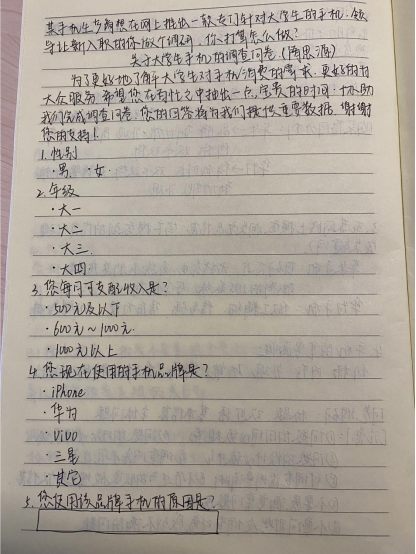 某手机生产商想在网上推出一款专门针对大学生的手机,领
导让新入职的你做个调研,你打算怎么做?
关于大学生手机的调查问卷(周思源)
为了更好地了解大学生对手机消费的需求,更好的为
大众服务,希望您在百忙之中抽出一点宝贵的时间,协助
我们完成调查问卷,您的回答将为我们提供重要数据,谢谢
您的支持!
1.性别
·男 ·女
2.年级
·大一
·大二
·大三
·大四
3.您每月可支配收入是?
·500元及以下
·600元~1000元
·1000元以上
4.您现在使用的手机品牌是?
·iPhone
·华为
·vivo
·三星
·其它
5.您使用该品牌手机的原因是?